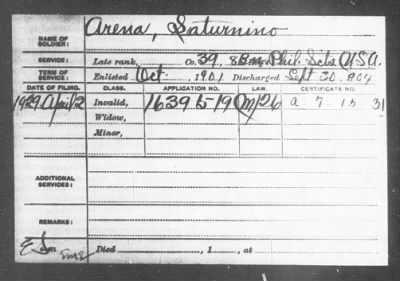 NAME OF SOLDIER: Arena, Saturnino
SERVICE: Late rank, Co. 39, Phil. Scts U.S.A.
TERM OF SERVICE: Enlisted Oct. , 1901 Discharged Sept. 30, 1904
DATE OF FILING. CLASS. APPLICATION NO. LAW. CERTIFICATE NO.
1929 April 2 Invalid, 1639519 a 7 15 31
Widow,
Minor,
ADDITIONAL SERVICES:
REMARKS:
Died , 1 , at